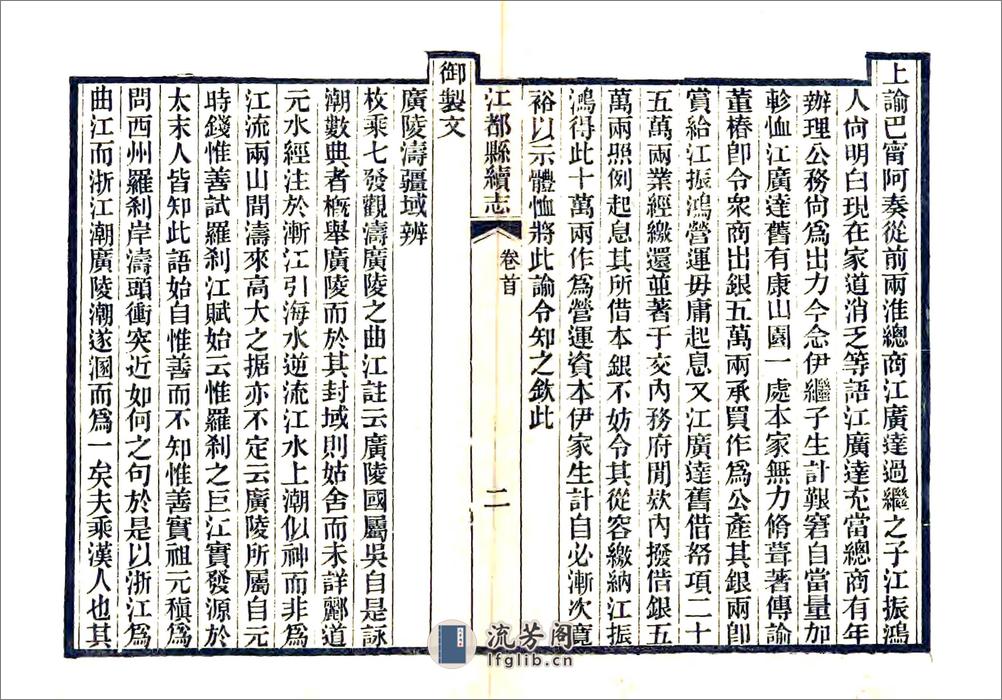 上諭巴甯阿奏從前兩淮總商江廣達過繼之子江振鴻
人尙明白現在家道消乏等語江廣達充當總商有年
辦理公務尙爲出力今念伊繼子生計艱窘自當量加
軫恤江廣達舊有康山園一處本家無力脩葺著傳諭
董椿卽令衆商出銀五萬兩承買作爲公產其銀兩卽
賞給江振鴻營運毋庸起息又江廣達舊借帑項二十
五萬兩業經繳還並著于交內務府閒款內撥借銀五
萬兩照例起息其所借本銀不妨令其從容繳納江振
鴻得此十萬兩作爲營運資本伊家生計自必漸次寬
裕以示體恤將此諭令知之欽此
江都縣續志
卷首
二
御製文
廣陵濤疆域辨
枚乘七發觀濤廣陵之曲江註云廣陵國屬吳自是詠
潮數典者槪舉廣陵而於其封域則姑舍而未詳酈道
元水經注於漸江引海水逆流江水上潮似神而非爲
江流兩山間濤來高大之據亦不定云廣陵所屬自元
時錢惟善試羅刹江賦始云惟羅刹之巨江實發源於
太末人皆知此語始自惟善而不知惟善實祖元稹爲
問西州羅刹岸濤頭衝突近如何之句於是以浙江爲
曲江而浙江潮廣陵潮遂溷而爲一矣夫乘漢人也其
流芳阁
lfglib.cn